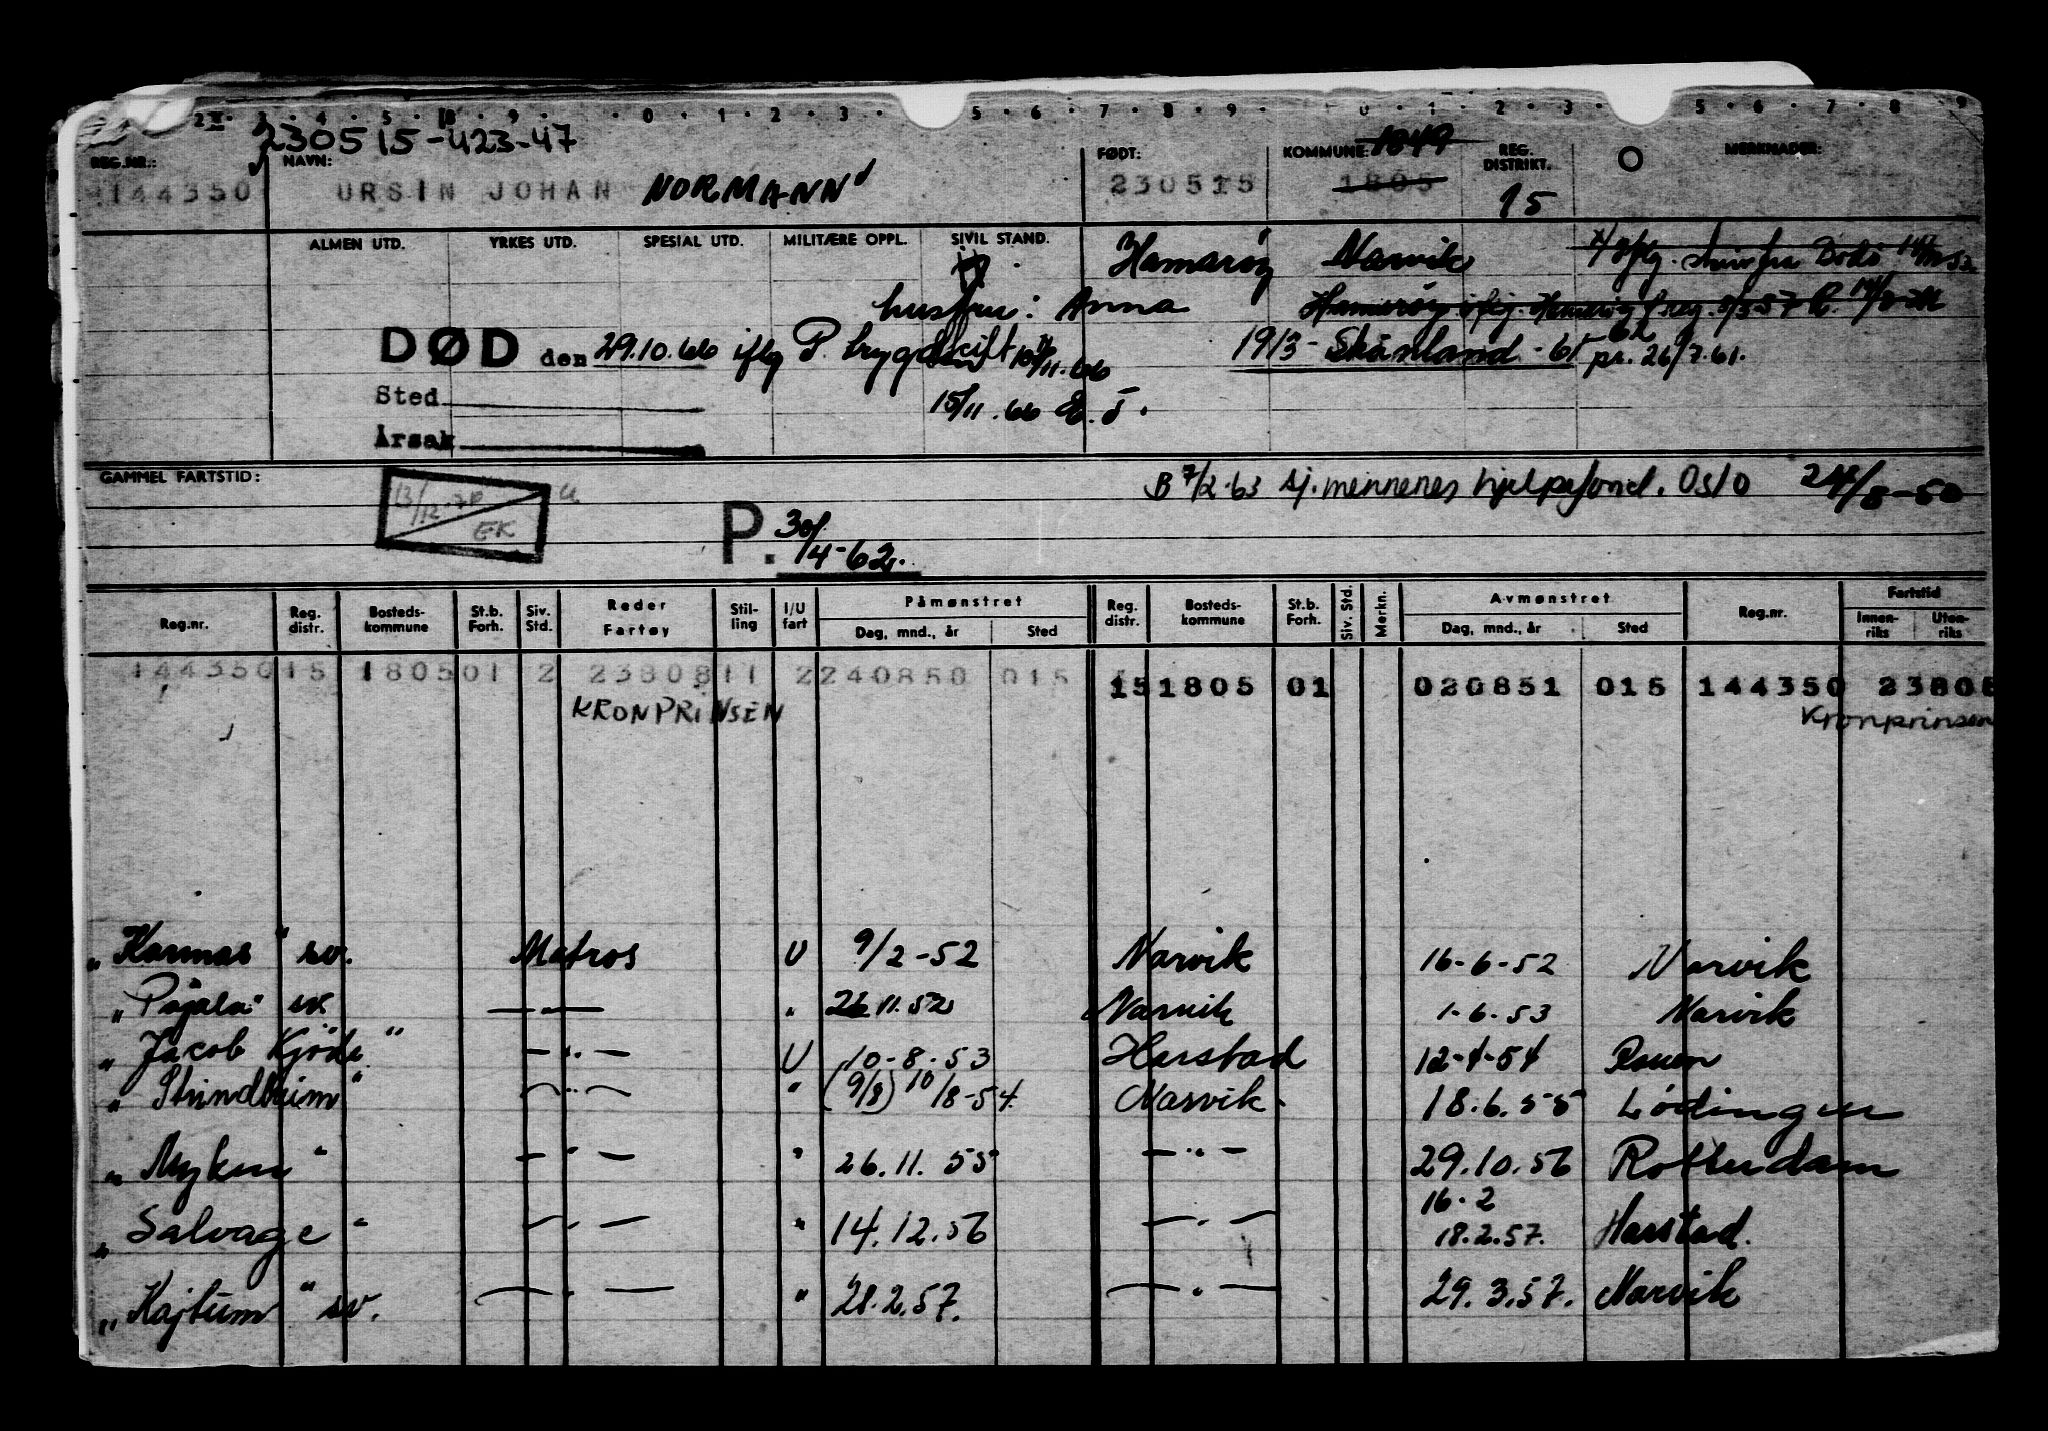 230515-423-47
REG.NR.: NAVN: FØDT: KOMMUNE: 1849 REG. DISTRIKT. MERKNADER:
144350 URSIN JOHAN NORMANN 230515 1805 15
ALMEN UTD. YRKES UTD. SPESIAL UTD. MILITÆRE OPPL. SIVIL STAND. Hamarøy Narvik
hustru: Anna
DØD den 29.10.66 iflg P. 1913 - Skånland - 61 pr. 26/7.61.
Sted 15/11.66
Årsak
GAMMEL FARTSTID: B 7/2-63 sj.mennenes hjelpefond. Oslo 24/8-50
13/12 EK
P. 30/4-62.
Reg.nr. Reg. distr. Bosteds-kommune St.b. Forh. Siv. Std. Reder Fartøy Stil-ling I/U fart Påmønstret Dag, mnd., år Sted Reg. distr. Bosteds-kommune St.b. Forh. Siv. Std. Merkn. Avmønstret Dag, mnd., år Sted Reg.nr. Fartstid Innen-riks Uten-riks
144350 15 1805 01 2 23808 11 2 240850 015 15 1805 01 020851 015 144350 23808
KRONPRINSEN Kronprinsen
"Karmas" sv. Matros U 9/2-52 Narvik 16-6-52 Narvik
"Pajala" sv — " — " 26.11.52 Narvik 1-6.53 Narvik
"Jacob Kjöde" — " — U 10-8-53 Harstad 12-4-54 Rouen
"Strindheim" — " — " (9/8) 10/8-54. Narvik. 18.6.55 Lödingen
"Myken" — " — " 26.11.55 — " — 29.10.56 Rotterdam
16-2
"Salvage" — " — " 14.12.56 — " — 18.2.57. Harstad.
"Kajtum" sv. — " — " 21.2.57. — " — 29.3.57. Narvik